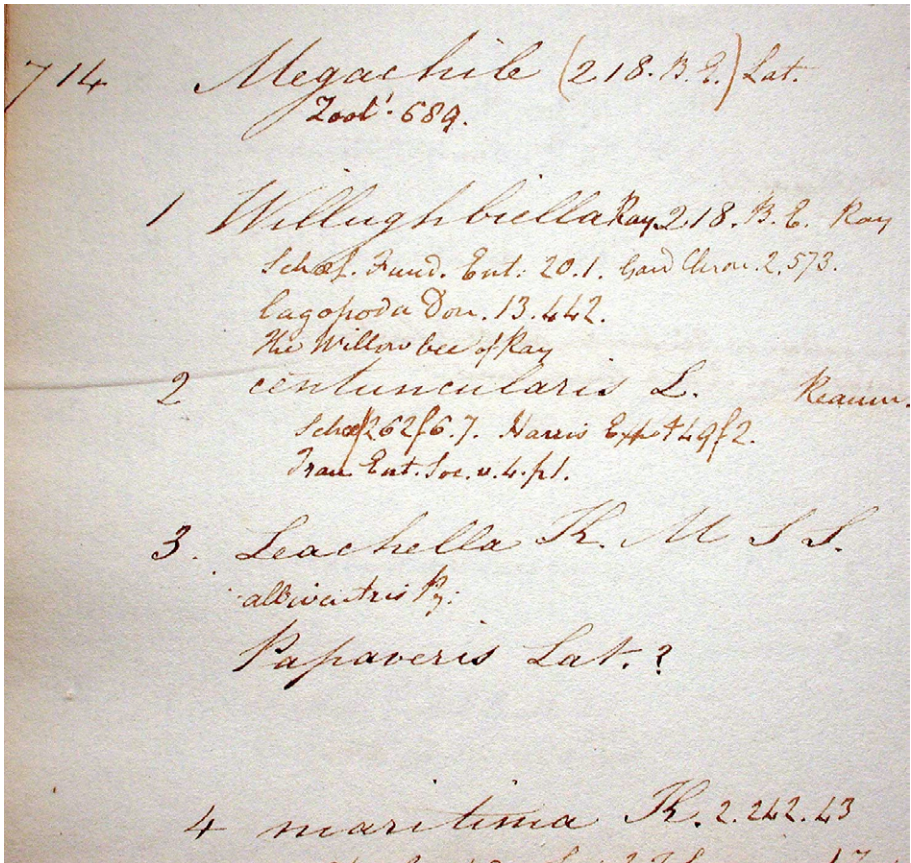 714 Megachile (218. B. E.) Lat.
Zool! 689.
1 Willughbiella Ray 218. B. E. Ray
Schæf. Fund. Ent: 20.1. Gard Chron. 2.573.
lagopoda Don. 13.442.
the Willow bee of Ray
2 centuncularis L. Reaum.
Schæf 262 f 6.7. Harris Exp t 49 f 2.
Tran Ent. Soc. v. 4. pl.
3. Leachella K. M S S.
albiventris
Papaveris Lat. ?
4 maritima K. 2.242.43
17